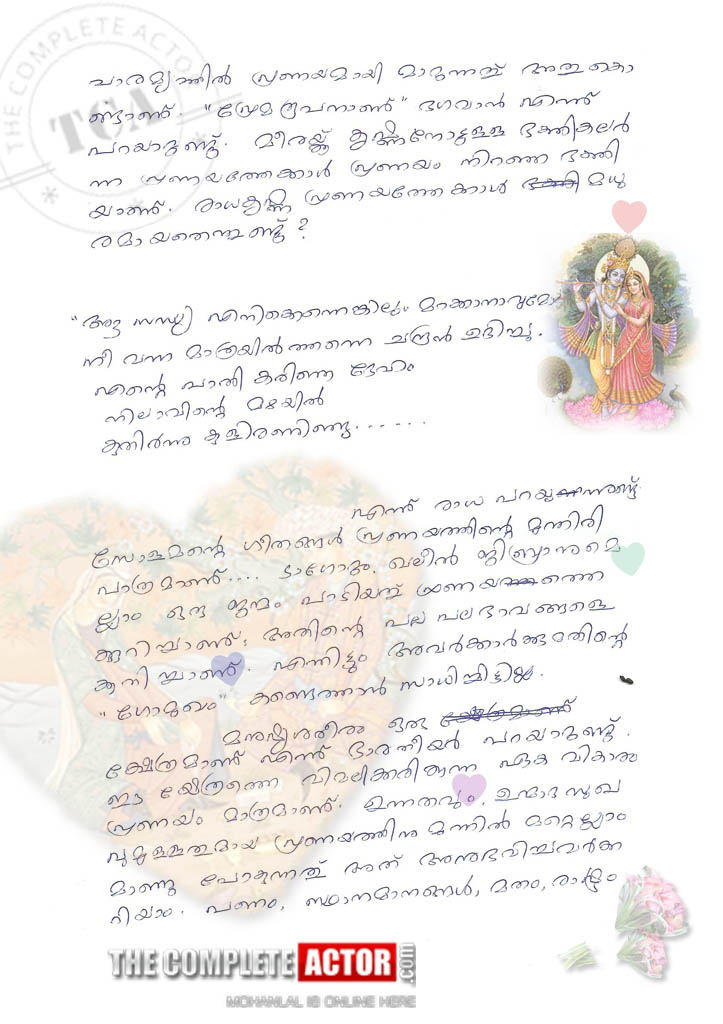 THE COMPLETE ACTOR
TCA
പാരമ്യത്തിൽ പ്രണയമായി മാറുന്നത് അതുകൊ
ണ്ടാണ്. "പ്രേമരൂപനാണ്" ഭഗവാൻ എന്ന്
പറയാറുണ്ട്. മീരയ്ക്ക് കൃഷ്ണനോടുള്ള ഭക്തികലർ
ന്ന പ്രണയത്തേക്കാൾ പ്രണയം നിറഞ്ഞ ഭക്തി
യാണ്. രാധകൃഷ്ണ പ്രണയത്തേക്കാൾ മധു
രമായതെന്തുണ്ട്?
"ആ സന്ധ്യ എനിക്കെന്നെങ്കിലും മറക്കാനാവുമോ
നീ വന്ന മാത്രയിൽത്തന്നെ ചന്ദ്രൻ ഉദിച്ചു.
എന്റെ പാതി കരിഞ്ഞ ദേഹം
നിലാവിന്റെ മഴയിൽ
കുതിർന്നു കുളിരണിഞ്ഞു......
എന്ന് രാധ പറയുന്നുണ്ട്.
സോളമന്റെ ഗീതങ്ങൾ പ്രണയത്തിന്റെ മുന്തിരി
പാത്രമാണ്.... ടാഗോറും, ഖലീൽ ജിബ്രാനുമെ
ല്ലാം ഒരു ജന്മം പാടിയത് പ്രണയത്തെ
ക്കുറിച്ചാണ്; അതിന്റെ പല പല ഭാവങ്ങളെ
കുറിച്ചാണ്. എന്നിട്ടും അവർക്കാർക്കുമതിന്റെ
"ഗോമുഖം" കണ്ടെത്താൻ സാധിച്ചിട്ടില്ല.
മനുഷ്യശരീരം ഒരു
ക്ഷേത്രമാണ് എന്ന് ഭാരതീയർ പറയാറുണ്ട്.
ഈ ക്ഷേത്രത്തെ വിമലീകരിക്കുന്ന ഏക വികാരം
പ്രണയം മാത്രമാണ്. ഉന്നതവും, ഉന്മാദ സുഖ
വുമുള്ളതുമായ പ്രണയത്തിനു മുന്നിൽ മറ്റെല്ലാം
മാഞ്ഞു പോകുന്നത് അത് അനുഭവിച്ചവർക്ക
റിയാം. പണം, സ്ഥാനമാനങ്ങൾ, മതം, രാഷ്ട്രം
THE COMPLETE ACTOR.com
MOHANLAL IS ONLINE HERE